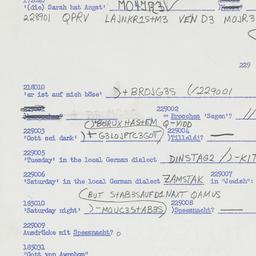 '(die) Sarah hat Angst' MO4JR3V
228901 QPRV LAJNKR1STM3 VEN D3 MOJR3
229
218010
'er ist auf mich böse' )+BROJG3S (/229001
229002
= Broochen 'Segen'?
)+BORUXHASHEM Q-VIDD
229003 229004
'Gott sei dank' )+G3LOJPTC3GOT )Tilleldi?
229005
'Tuesday' in the local German dialect DINSTAG2 /-KIT
229006 229007
'Saturday' in the local German dialect ZAMSTAK in "Jewish":
(BUT S+AB3SAUFD1NAXT QAMUS
185010 229008
'Saturday night' )-MOUC3S+AB3S )Speesnacht?
229009
Ausdrücke mit Speesnacht? 0
185031
"Gott von Awrohom"